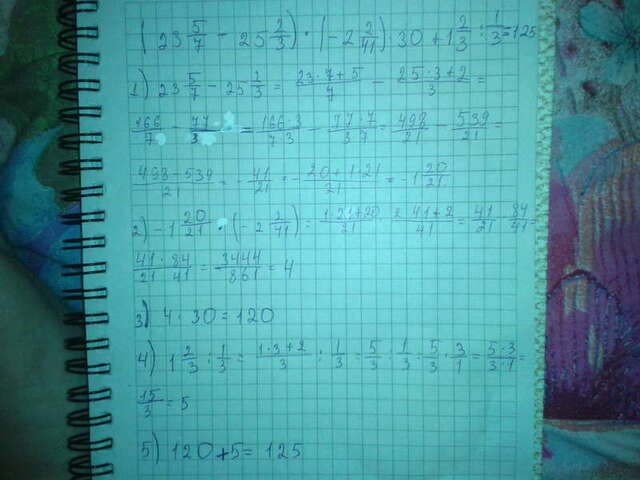 ( 23 5/7 - 25 2/3 ) · ( -2 2/41 ) · 30 + 1 2/3 : 1/3 = 125
1) 23 5/7 - 25 2/3 = 23·7+5/7 - 25·3+2/3 =
166/7 - 77/3 = 166·3/7·3 - 77·7/3·7 = 498/21 - 539/21 =
498-539/21 = - 41/21 = - 20+1·21/21 = -1 20/21
2) -1 20/21 · ( -2 2/41 ) = 1·21+20/21 · 2·41+2/41 = 41/21 · 84/41 =
41·84/21·41 = 3444/861 = 4
3) 4 · 30 = 120
4) 1 2/3 : 1/3 = 1·3+2/3 : 1/3 = 5/3 : 1/3 = 5/3 · 3/1 = 5·3/3·1 =
15/3 = 5
5) 120 + 5 = 125